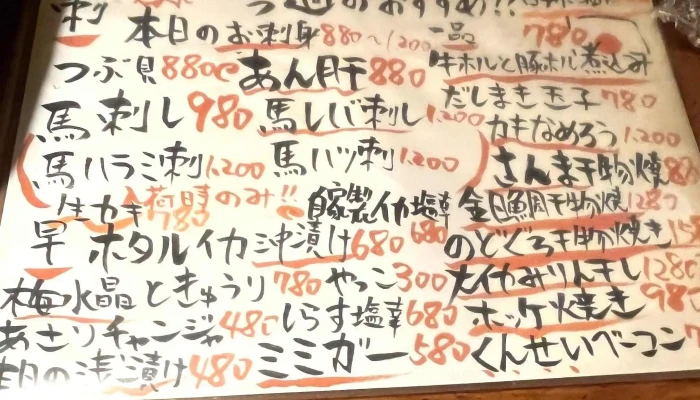 刺
のおすすめ!!
本日のお刺身 880〜1200
一品 780
つぶ貝 880
あん肝 880
牛ホルと豚ホル煮込み
馬刺し 980
馬レバ刺し 1.200
だしまき玉子 780
馬ハラミ刺 1.200
馬ハツ刺 1.200
カキなめろう 1.200
入荷時のみ!!
さんま干物焼
生カキ 780
自家製イカ塩辛 680
金目鯛干物焼 1280
早
ホタルイカ沖漬け 680
のどぐろ干物焼き
梅水晶ときゅうり 780
やっこ 300
大イカみりん干し 1280
あさりチャンジャ 480
しらす塩辛 680
ホッケ焼き 980
の浅漬け 480
ミミガー 580
くんせいベーコン